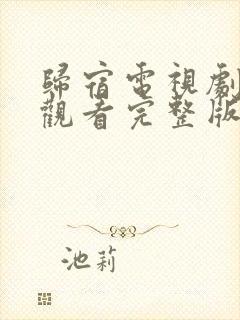 歸宿電視劇
觀看完整版
池莉